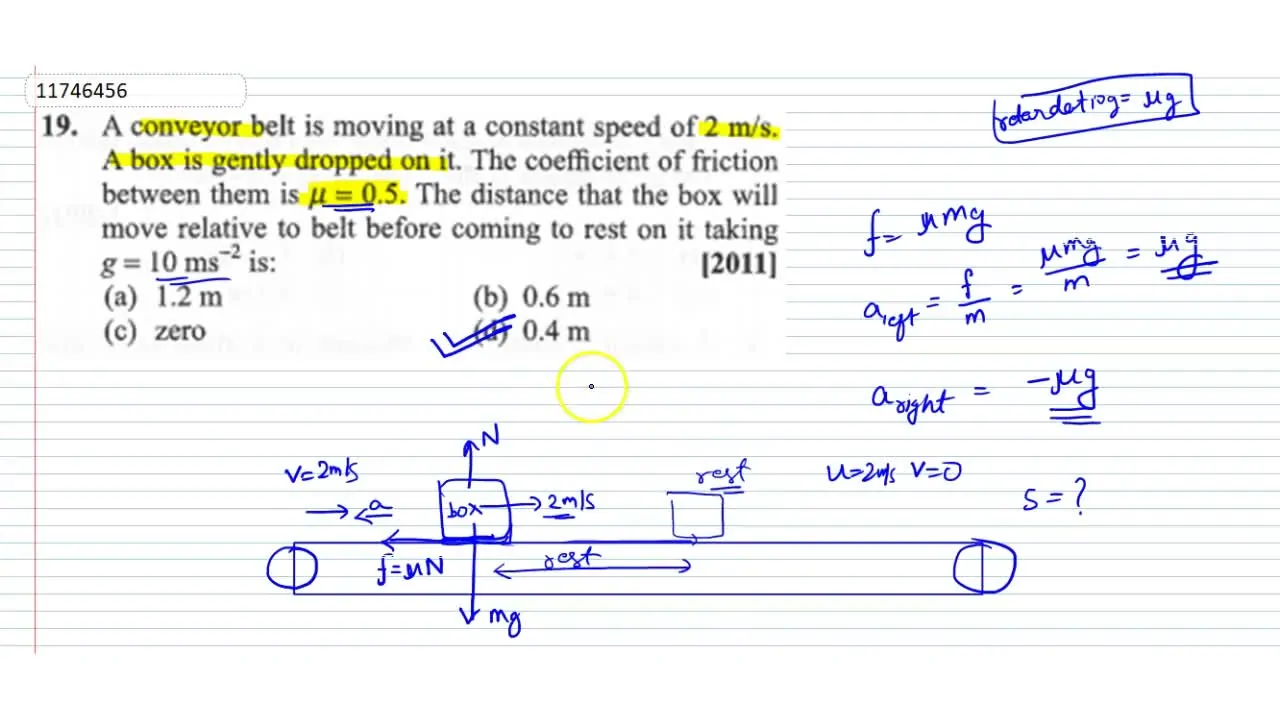 11746456
retardation = μg
19. A conveyor belt is moving at a constant speed of 2 m/s.
A box is gently dropped on it. The coefficient of friction
between them is μ = 0.5. The distance that the box will
move relative to belt before coming to rest on it taking
g = 10 ms⁻² is: [2011]
(a) 1.2 m (b) 0.6 m
(c) zero (d) 0.4 m
f = μmg
a left = f/m = μmg/m = μg
a right = -μg
u=2m/s v=0
s = ?
N
v=2m/s
a
box
2m/s
rest
f=μN
rest
mg